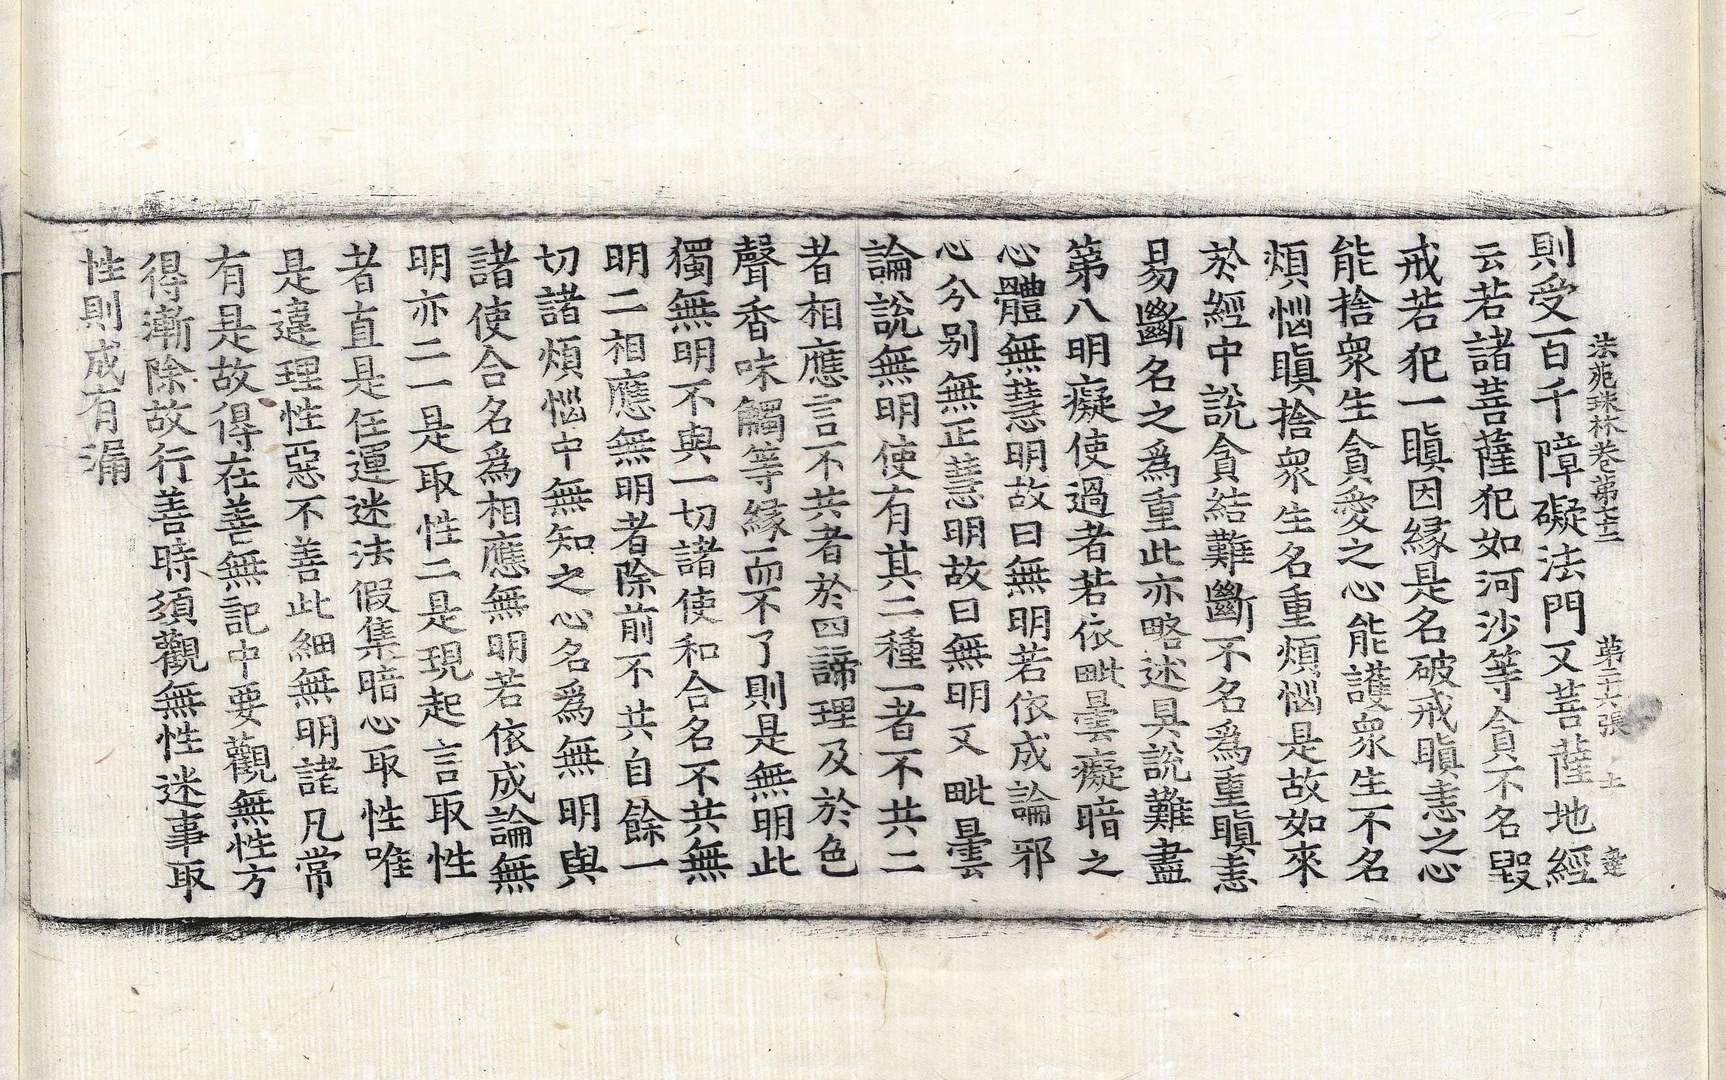 法苑珠林卷第七十三 第二十六張 土
則受百千障礙法門又菩薩地經
云若諸菩薩犯如河沙等貪不名毀
戒若犯一瞋因緣是名破戒瞋恚之心
能捨衆生貪愛之心能護衆生不名
煩惱瞋捨衆生名重煩惱是故如來
於經中說貪結難斷不名爲重瞋恚
易斷名之爲重此亦略述具說難盡
第八明癡使過者若依毗曇癡暗之
心體無慧明故曰無明若依成論邪
心分別無正慧明故曰無明又毗曇
論說無明使有其二種一者不共二
者相應言不共者於四諦理及於色
聲香味觸等緣而不了則是無明此
獨無明不與一切諸使和合名不共無
明二相應無明者除前不共自餘一
切諸煩惱中無知之心名爲無明與
諸使合名爲相應無明若依成論無
明亦二一是取性二是現起言取性
者直是任運迷法假集暗心取性唯
是違理性惡不善此細無明諸凡常
有是故得在善無記中要觀無性方
得漸除故行善時須觀無性迷事取
性則成有漏